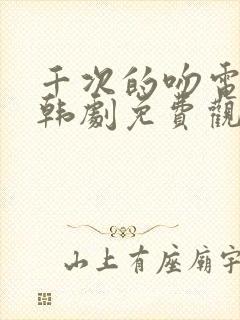 千次的吻電
韩劇免費觀
山上有座廟宇